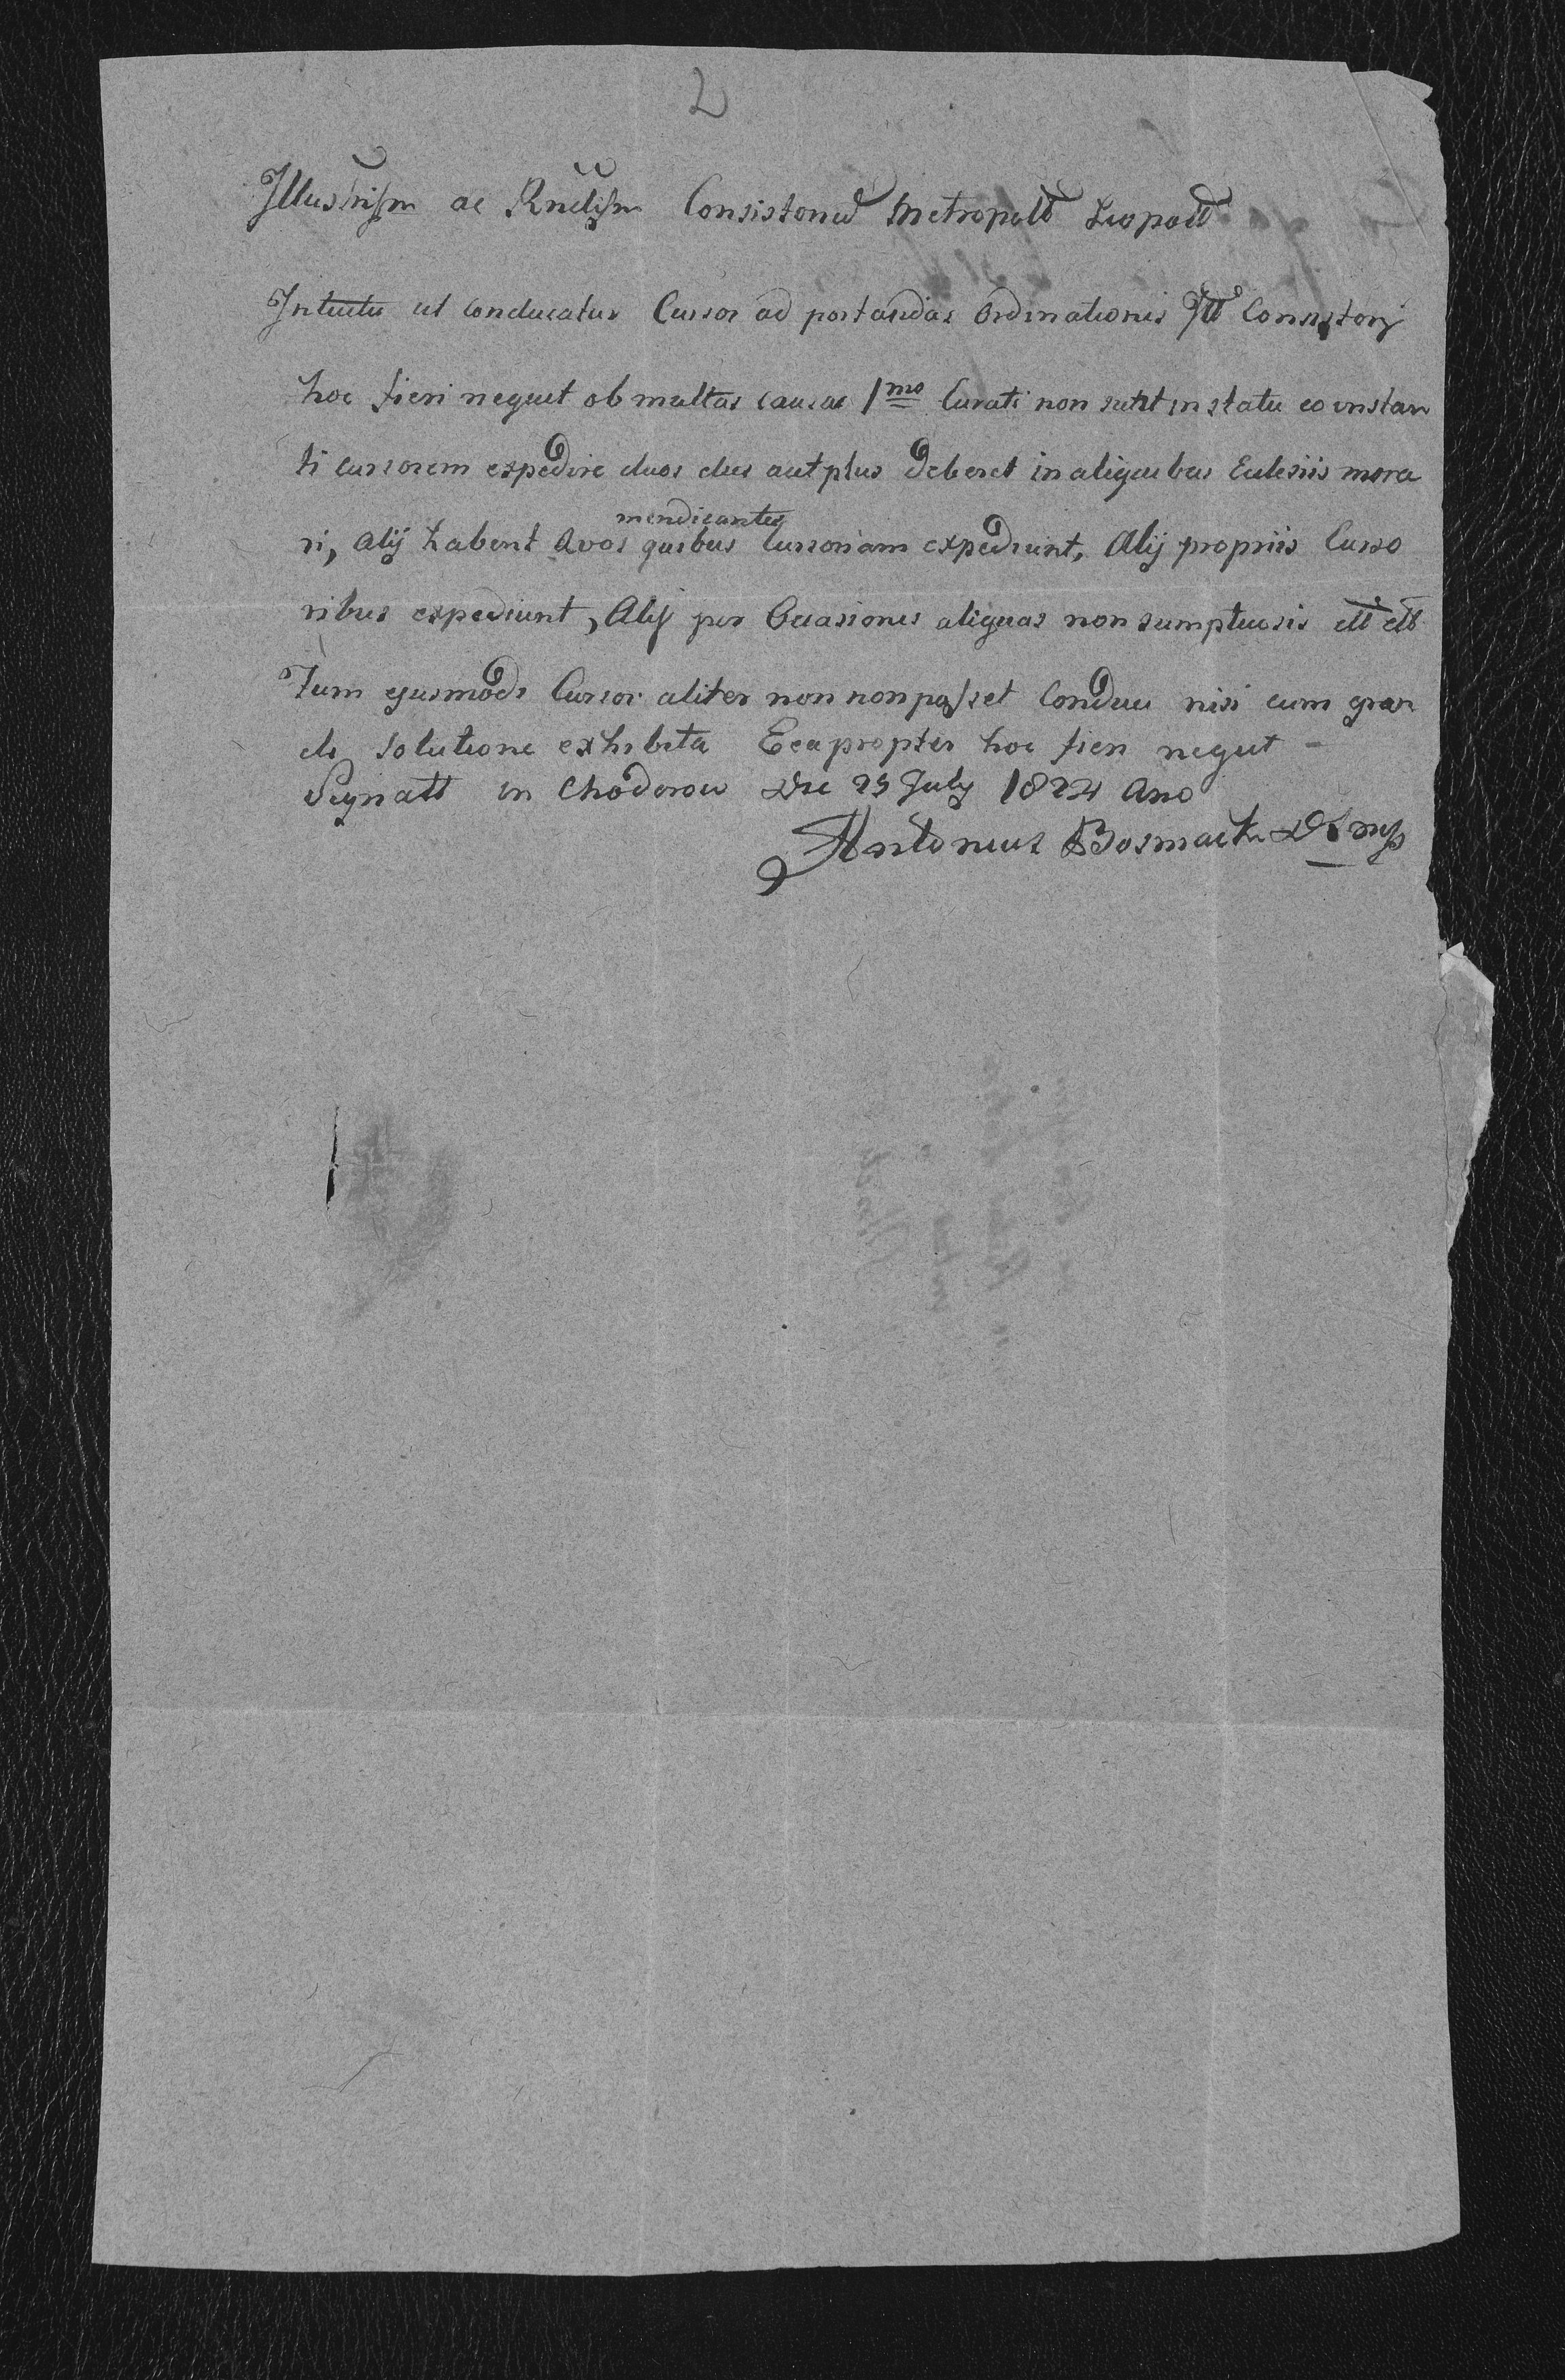 2
Illustrissm ac Rndissm Consistorium Metropoltt Leopoltt
Intuitu ut conducatur Cursor ad portandas Ordinationes Itt Consistorij
hoc fieri nequit ob multas causas 1mo Curati non sunt in statu eo instan
ti cursorem expedire duos dies aut plus deberet in aliquibus Eclesiis mora
ri, alij habent Avos quibus Cursoriam expediunt, Alij propriis Curso
mendicantes
ribus expediunt, Alij per Occasiones aliquas non sumptuosis ett ett
Tum ejusmodi Cursor aliter non non posset Conduci nisi cum gran
di solutione exhibita Eeapropter hoc fieri nequit –
Signatt in Chodorow Die 25 July 1824 Ano
Antonius